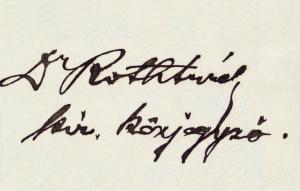 Dr Rothtwiél
kir. közjegyző.